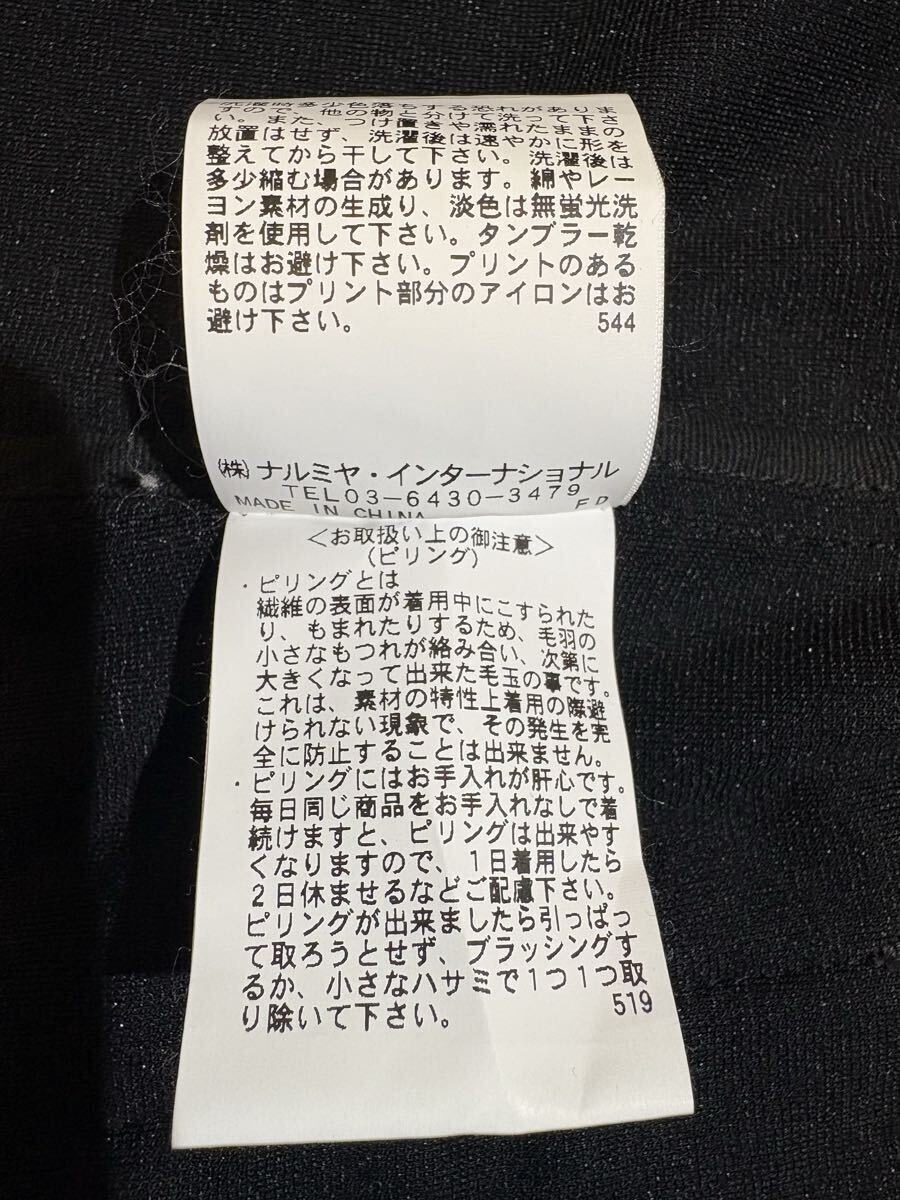 洗濯時多少色落ちする恐れがありま
すので、他の物と分けて洗って下さ
い。また、つけ置きや濡れたままの
放置はせず、洗濯後は速やかに形を
整えてから干して下さい。洗濯後は
多少縮む場合があります。綿やレー
ヨン素材の生成り、淡色は無蛍光洗
剤を使用して下さい。タンブラー乾
燥はお避け下さい。プリントのある
ものはプリント部分のアイロンはお
避け下さい。 544
(株)ナルミヤ・インターナショナル
TEL03-6430-3479
MADE IN CHINA
<お取扱い上の御注意>
(ピリング)
・ピリングとは
繊維の表面が着用中にこすられた
り、もまれたりするため、毛羽の
小さなもつれが絡み合い、次第に
大きくなって出来た毛玉の事です。
これは、素材の特性上着用の際避
けられない現象で、その発生を完
全に防止することは出来ません。
・ピリングにはお手入れが肝心です。
毎日同じ商品をお手入れなしで着
続けますと、ピリングは出来やす
くなりますので、1日着用したら
2日休ませるなどご配慮下さい。
ピリングが出来ましたら引っぱっ
て取ろうとせず、ブラッシングす
るか、小さなハサミで1つ1つ取
り除いて下さい。 519